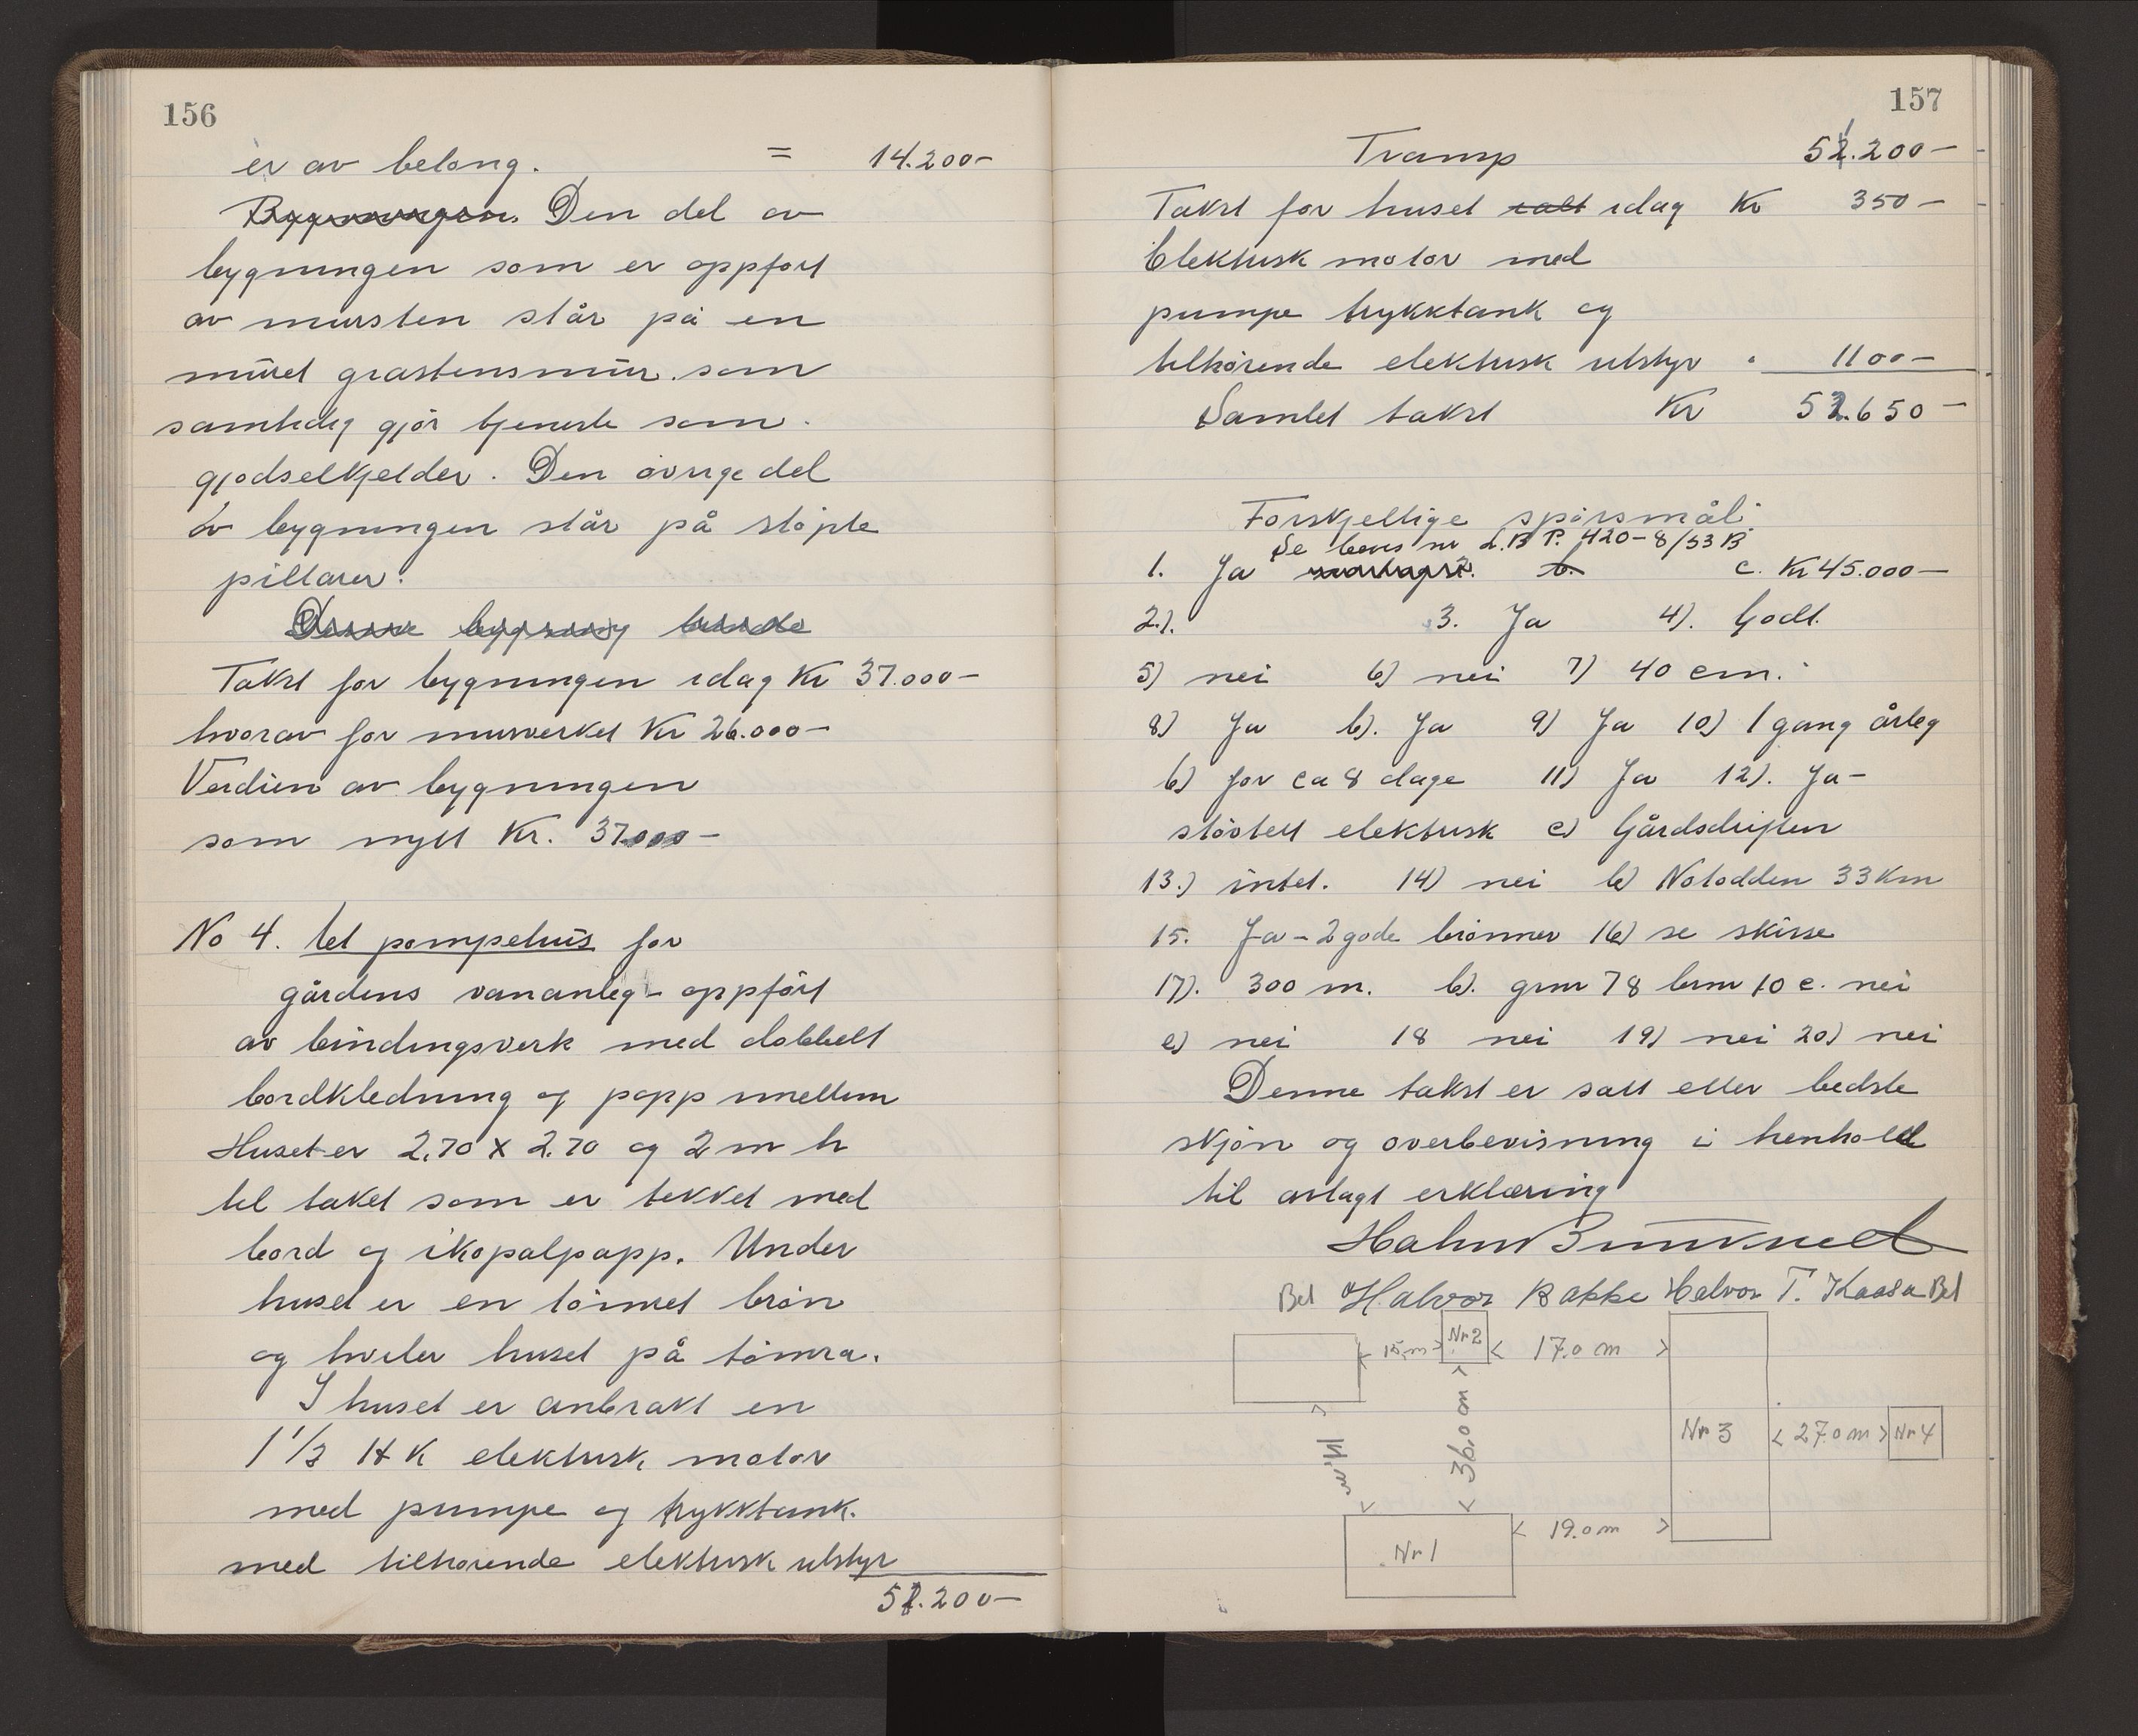 156
er av belong. = 14.200-
Bygningen. Den del av
bygningen som er oppført
av mursten står på en
muret gråstensmur som
samtidig gjör tjeneste som
gjødselkjelder. Den övrige del
av bygningen står på stöpte
pillarer.
Denne bygning
Takst for bygningen idag Kr 37.000-
hvorav for murverket Kr 26.000-
Verdien av bygningen
som nytt Kr. 37.000-
No 4. Et pompehus for
gårdens vananleg - oppfört
av bindingsverk med dobbelt
bordkledning og papp imellem
Huset er 2.70 x 2.70 og 2 m h
til taket som er tekket med
bord og ikopalpapp. Under
huset er en tömret brön
og hviler huset på tömra.
I huset er anbrakt en
1 1/2 HK elektrisk motor
med pumpe og trykktank.
med tilhörende elektrisk utstyr
51.200-
157
Tramp 51.200-
Takst for huset idag Kr 350-
Elektrisk motor med
pumpe trykktank og
tilhörende elektrisk utstyr " 1100-
Samlet takst Kr 52.650-
Forskjellige spörsmål:
Se bevis nr L.B.P. 420-8/53 B
1. Ja b. c. Kr 45.000-
2.). 3. Ja 4). Godt.
5) nei 6) nei 7) 40 cm.
8) Ja b). Ja 9) Ja 10) 1 gang årleg
b) for ca 8 dage 11) Ja 12). Ja-
stövtett elektrisk c) Gårdsdriften
13.) intet. 14) nei b) Notodden 33 km
15. Ja - 2 gode brönner 16) se skisse
17). 300 m. b). grnr 78 brnr 10 c. nei
e) nei 18 nei 19) nei 20) nei
Denne takst er satt etter bedste
skjön og overbevisning i henhold
til avlagt erklæring
Halvor Bakke Halvor T. Kaasa
15,m Nr 2 17.0 m
36.0 m
Nr 3 27.0 m Nr 4
19.0 m
Nr 1